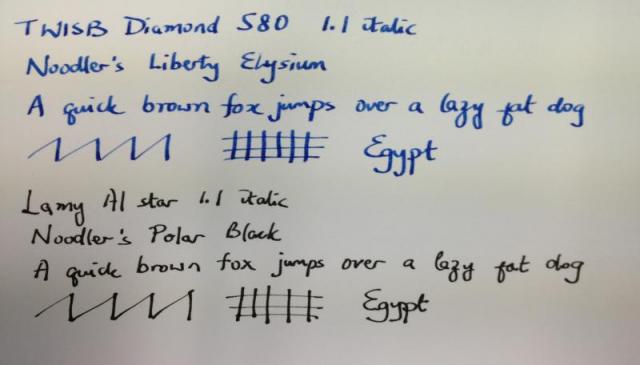 TWISB Diamond 580 1.1 italic
Noodler's Liberty Elysium
A quick brown fox jumps over a lazy fat dog
Egypt
Lamy Al star 1.1 italic
Noodler's Polar Black
A quick brown fox jumps over a lazy fat dog
Egypt